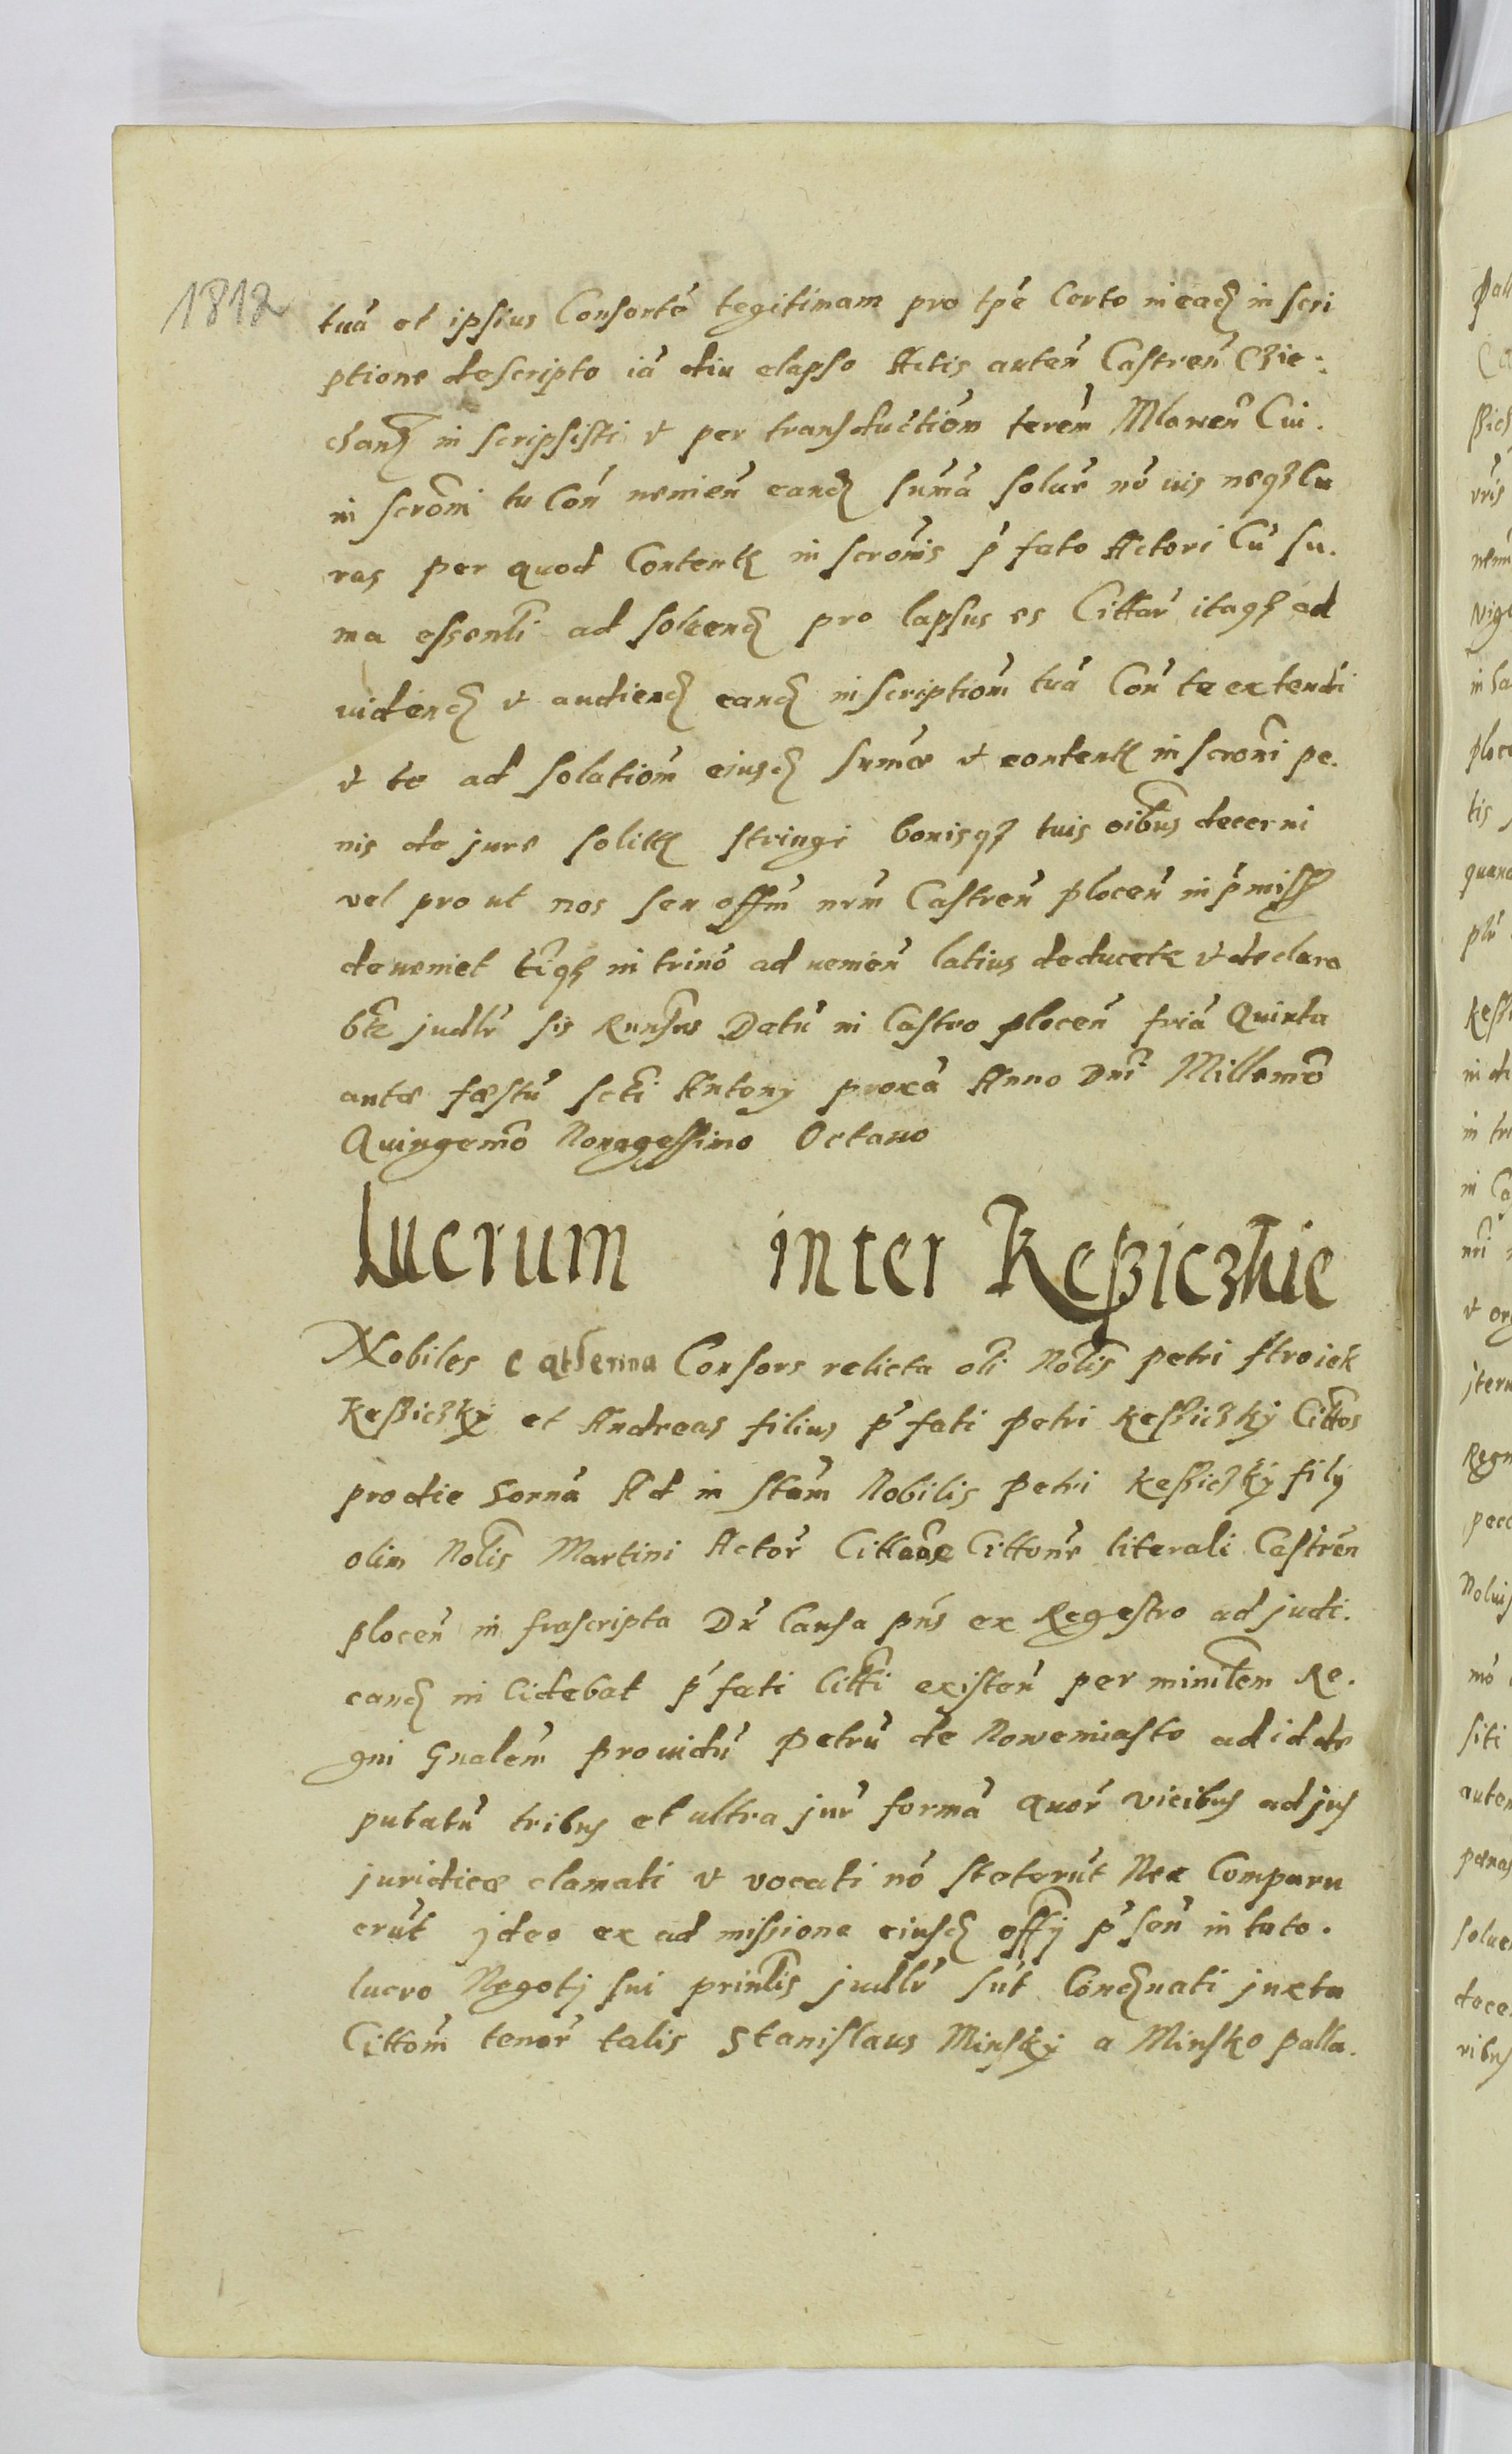 1812
tuā et ipsius Consortē legitimam pro tpē Certo in eadȝ in scri
ptione descripto iā diu elapso Actis autem̄ Castren̄ Czie:
chanȝ in scripsisti et per transductiom̄ terēn Mlawen̄ Cui.
in scrom̄i tu Con̄ nenien̄ eandȝ sum̄ā soluē nō uis neqȝ Cu
ras per quod Contentȝ in scrom̄is p̄ fato Actori Cū su.
ma essenli ad soluendȝ pro lapsus es Cittar̄ itaqȝ ad
uidendȝ et audiendȝ eandȝ in scriptiom̄ tuā Con̄ te extendi
et te ad solutiom̄ eiusdȝ sum̄æ et contentȝ in scrom̄i pe.
nis de jure solitȝ stringi bonisqȝ tuis oībus decerni
vel pro ut nos seu offm̄ nrm̄ Castren̄ plocen̄ in p̄missȝ
deueniet tīqȝ in trinō ad uenien̄ latius deducete et declara
bte judlr̄ sis Runsus Datū in Castro plocen̄ friā Quinta
antæ fæstū scti Antony proxā Anno Dni Millemō
Quingemō Nonagessimo Octauo
Lucrum inter Keßiczkie
Nobiles Catherina Consors relicta oli Nolis petri stroiek
Keßiczky et Andreas filius p̄ fati Petri Keßiczky Cittos
pro die horna Ad in stam̄ Nobilis Petri Keßiczky fily
olim Nolis Martini Actor̄ Cittone literali Castren
plocen̄ in frascripta Dr̄ Causa pn̄s ex Regestro ad judi.
candȝ in Cidebat p̄ fati Citti existen̄ per ministem Re.
gni Gnalem̄ prouidū Petrū de Nowemiasto ad id de
putatū tribus et ultra jur̄ formā quor̄ vicibus ad jus
juridicæ clamati et vocati nō steterūt Nec Comparu
erūt jdeo ex ad missione eiusdȝ offy p̄ sen̄ in toto.
lucro Negotj sui prinlis judlr̄ sūt Condȝnati juxta
Cittom̄ tenor̄ talis Stanislaus Minsky a Minsko palla.